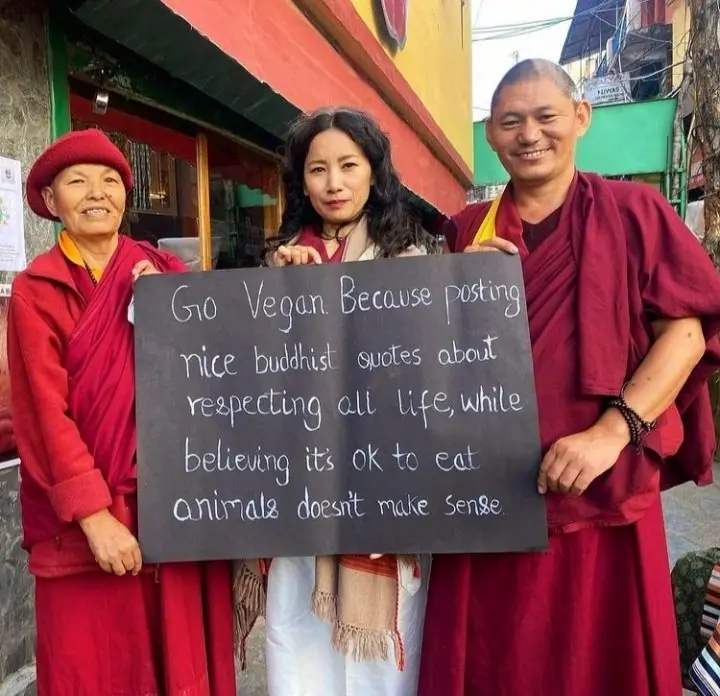 Go Vegan. Because posting
nice buddhist quotes about
respecting all life, while
believing it's ok to eat
animals doesn't make sense.